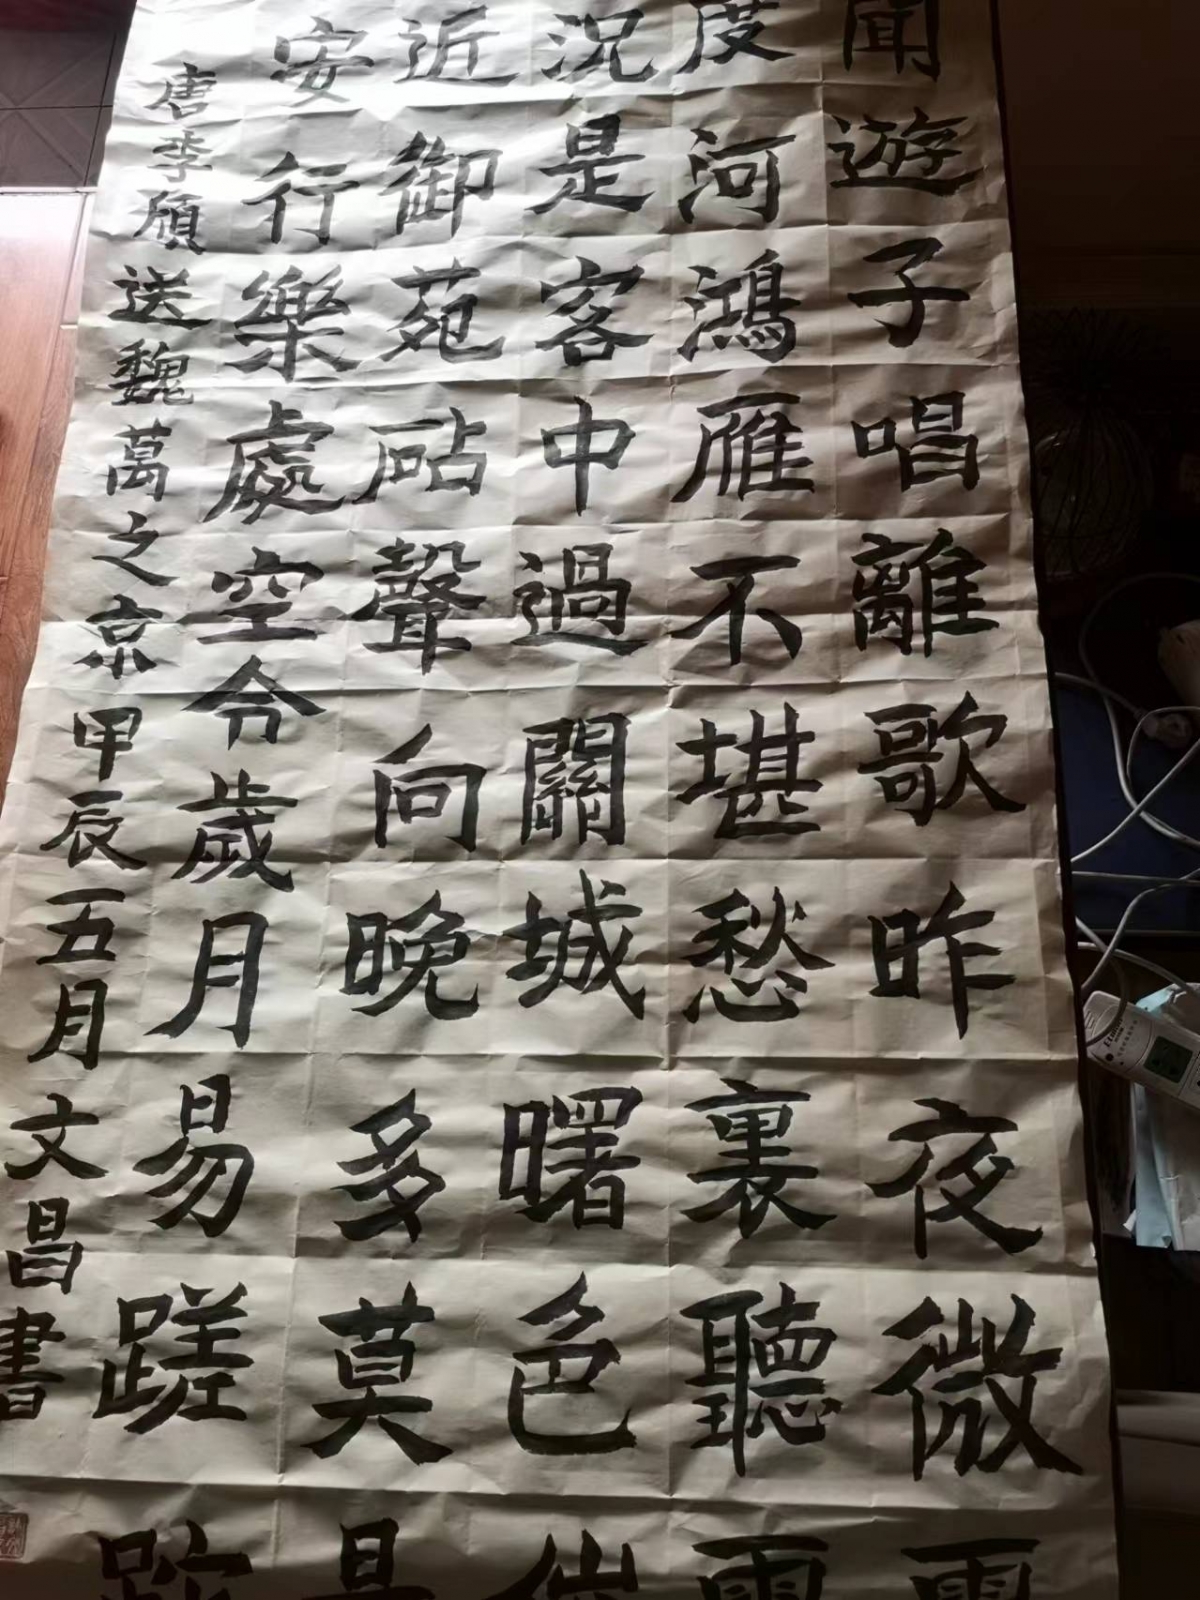 聞遊子唱離歌昨夜微
度河鴻雁不堪愁裏聽
況是客中過關城曙色
近御苑砧聲向晚多莫
安行樂處空令歲月易蹉
唐李頎送魏萬之京甲辰五月文昌書